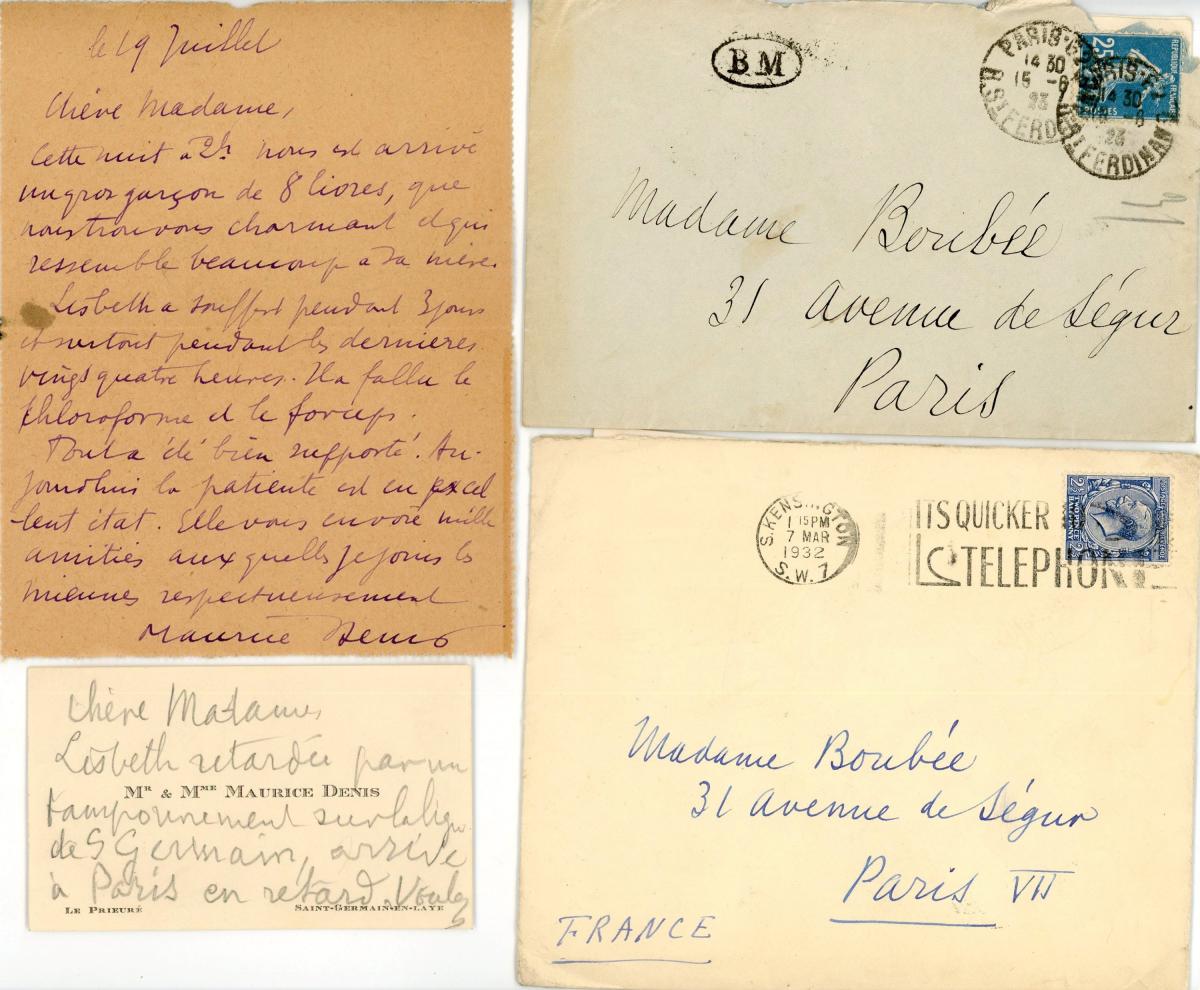 le 19 Juillet
Chère Madame,
Cette nuit à 2h nous est arrivé
un gros garçon de 8 livres, que
nous trouvons charmant et qui
ressemble beaucoup à sa mère.
Lisbeth a souffert pendant 3 jours
et surtout pendant les dernières
vingt quatre heures. Il a fallu le
chloroforme et le forceps.
Tout a été bien supporté. Au-
jourdhui la patiente est en excel
-lent état. Elle vous envoie mille
amitiés auxquelles je joins les
miennes respectueusement
Maurice Denis
Chère Madame
Lisbeth retardée par un
MR & MME MAURICE DENIS
tamponnement sur la ligne
de S Germain, arrive
à Paris en retard. Voulez
LE PRIEURÉ SAINT-GERMAIN-EN-LAYE
BM
PARIS
14 30
15 -6
23
R. ST FERDINAND
25
REPUBLIQUE FRANÇAISE
POSTES
Madame Boubée
31 Avenue de Ségur
Paris
S. KENSINGTON
1 15 PM
7 MAR
1932
S.W.7
ITS QUICKER
TO TELEPHONE
Madame Boubée
31 Avenue de Ségur
Paris VII
FRANCE